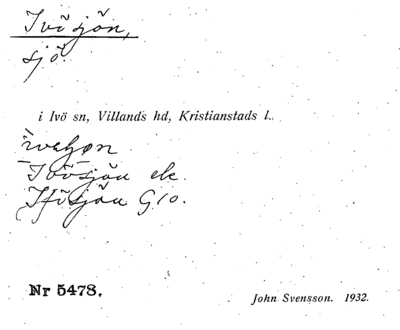 Ivösjön,
sjö.
i Ivö sn, Villands hd, Kristianstads l.
Ivösjön ek.
Ifösjön G10.
Nr 5478.
John Svensson. 1932.